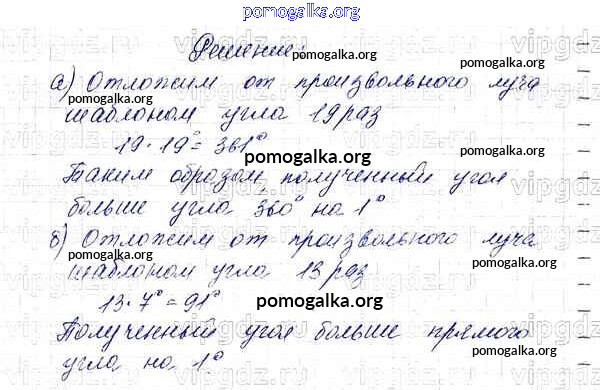 pomogalka.org
Решение:
pomogalka.org
а) Отложим от произвольного луча
шаблоном угла 19 раз
pomogalka.org
19 · 19° = 361°
pomogalka.org
Таким образом полученный угол
больше угла 360° на 1°
pomogalka.org
б) Отложим от произвольного луча
pomogalka.org
шаблоном угла 13 раз
pomogalka.org
13 · 7° = 91°
pomogalka.org
Полученный угол больше прямого
угла на 1°
pomogalka.org
pomogalka.org